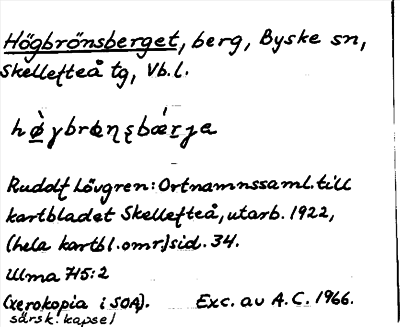 Högbrönsberget, berg, Byske sn,
Skellefteå tg, Vb.l.
hø̀γbrǝnsbǽrja
Rudolf Lövgren: Ortnamnssaml. till
kartbladet Skellefteå, utarb. 1922,
(hela kartbl. omr) sid. 34.
Ulma 715:2
(xerokopia i SOA). Exc. av A.C. 1966.
särsk. kapsel